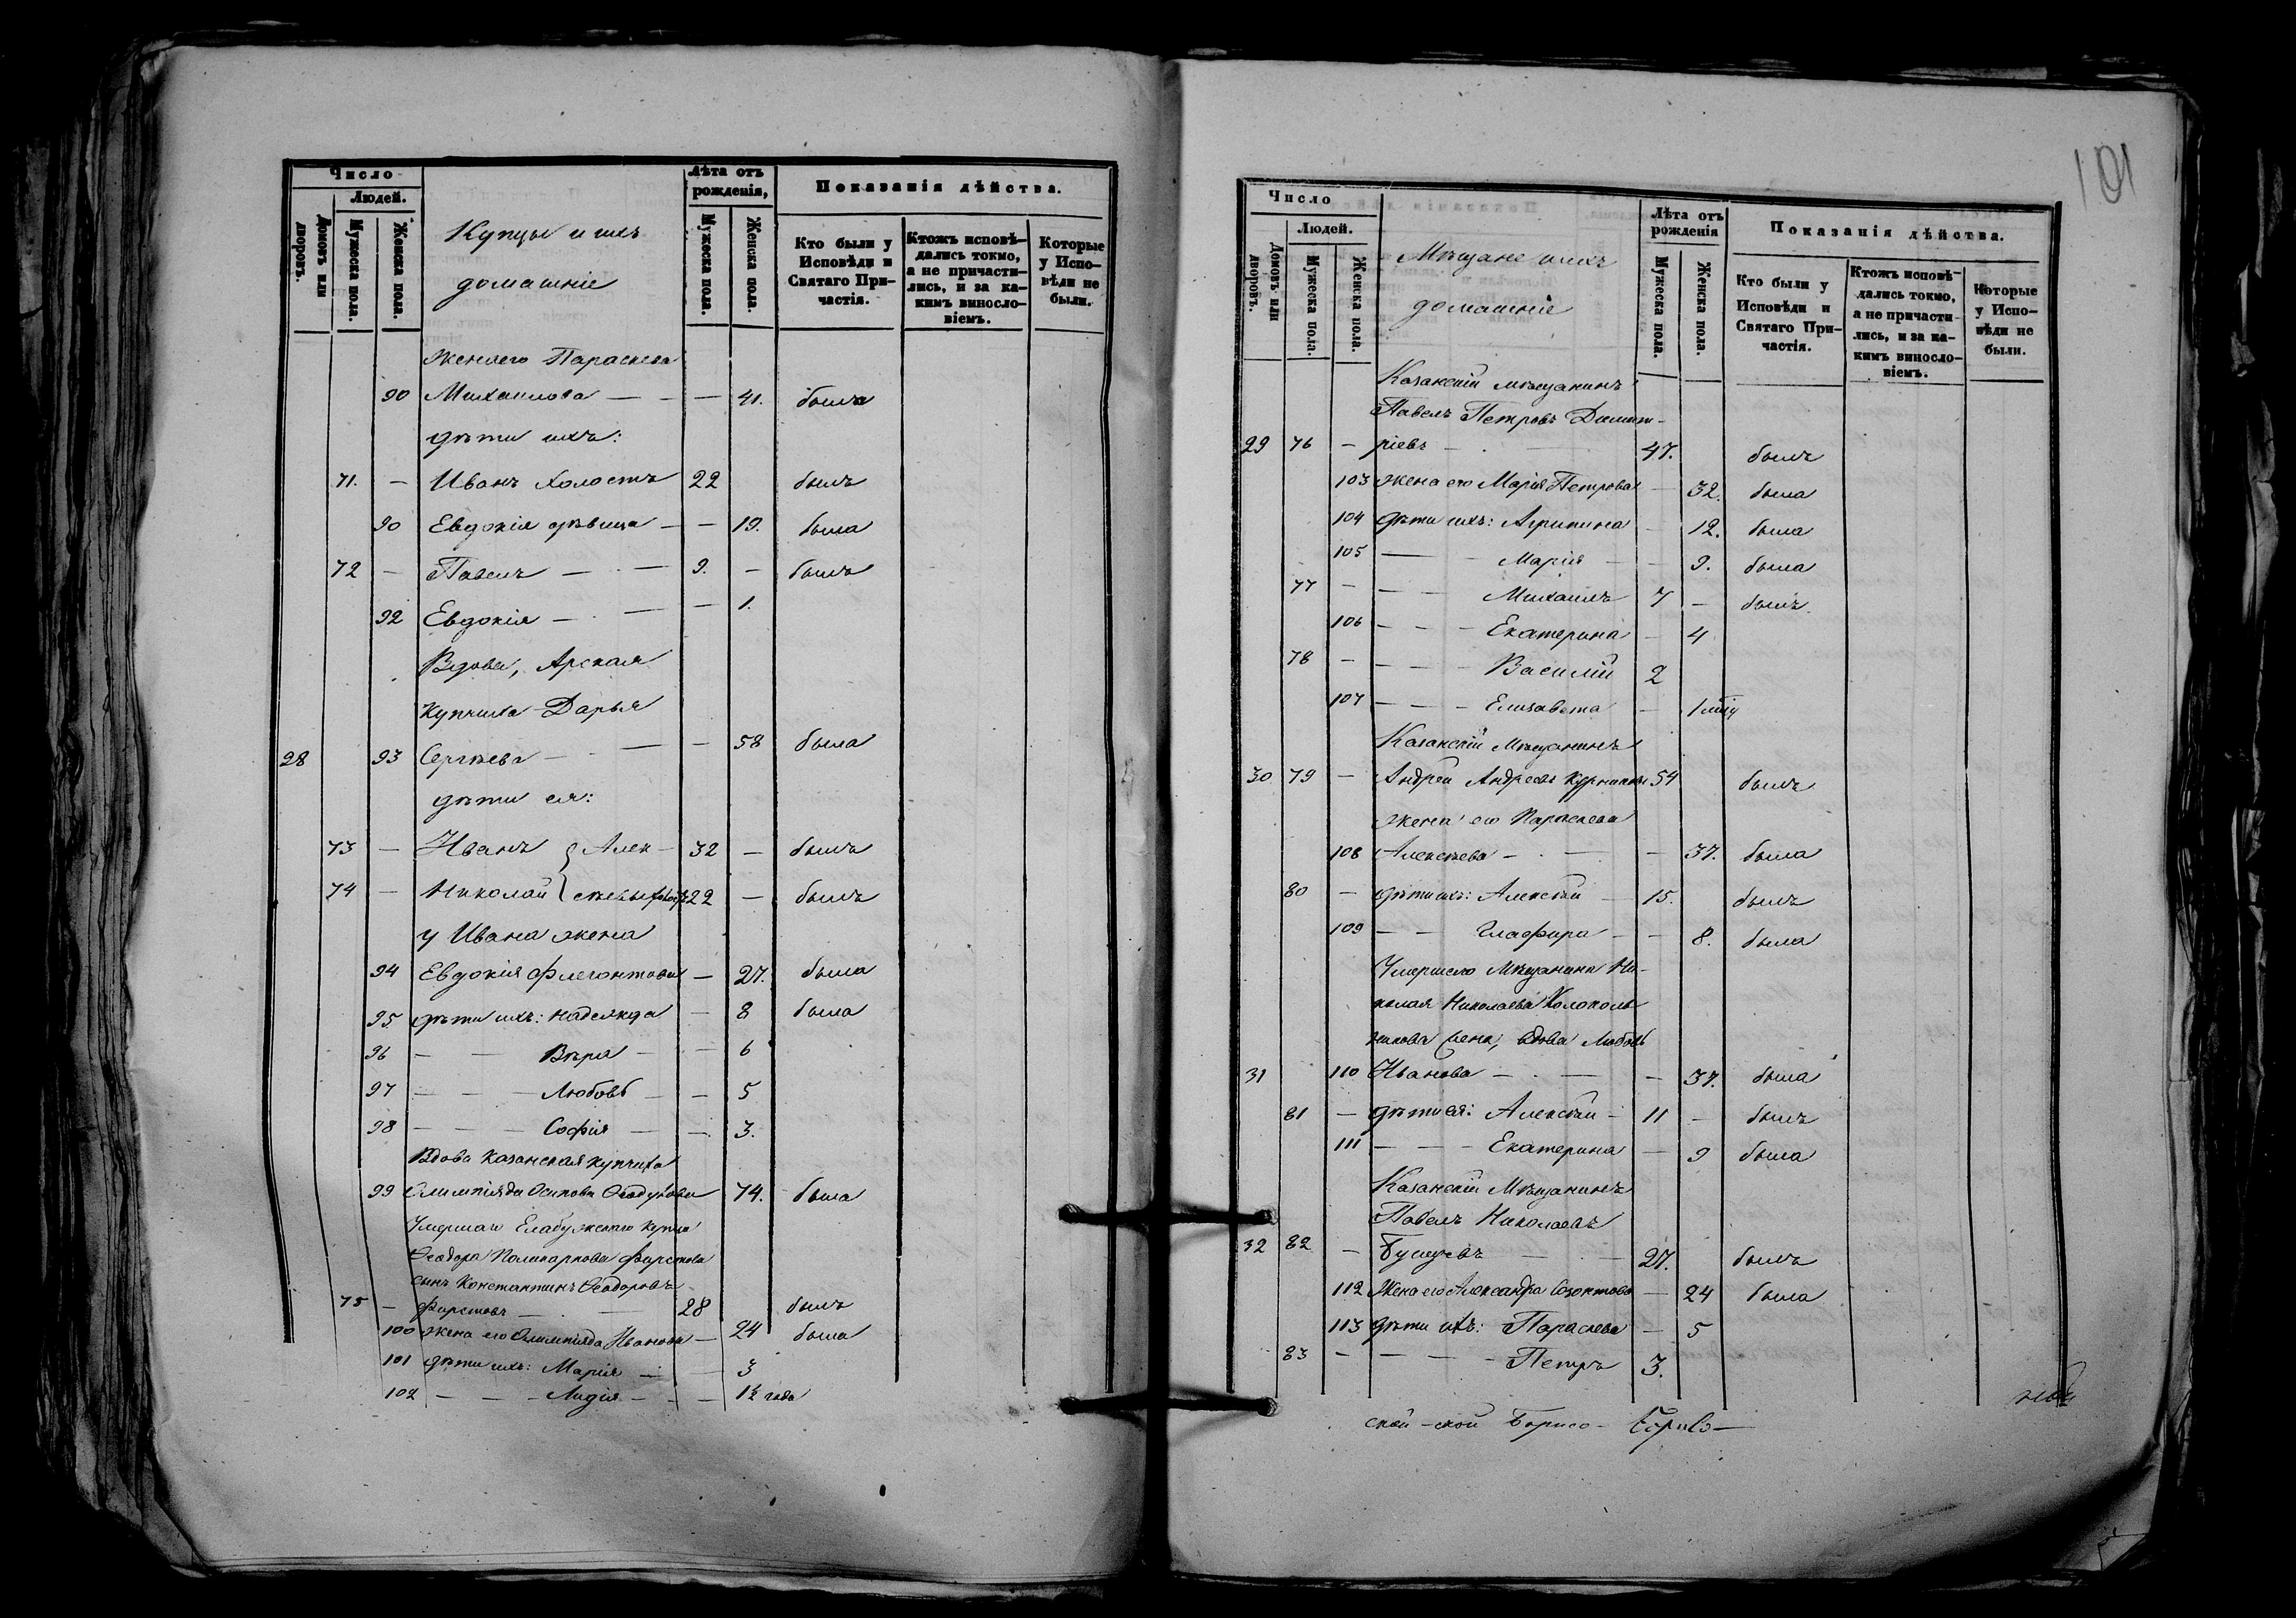 Число
Людей.
Домовъ или дворовъ.
Мужеска пола.
Женска пола.
Купцы и ихъ
домашніе
Лѣта отъ рожденія,
Мужеска пола.
Женска пола.
Показанія дѣйства.
Кто были у Исповѣди и Святаго Причастія.
Ктожъ исповѣдались токмо, а не причастились, и за какимъ винословіемъ.
Которые у Исповѣди не были.
Жена его Параскева
90 Михаилова — — — 41. была
дѣти ихъ:
71. — Иванъ холостъ 22 былъ
90 Евдокія дѣвица — — 19. была
72 — Павелъ — — 9. — былъ
92 Евдокія — — — 1.
Вдова, Арская
купчиха Дарья
28 93 Сергѣева — — — 58 была
дѣти ея:
73 — Иванъ } Алек- 32 — былъ
74 — Николай } сѣевы 22 — былъ
у Ивана жена
94 Евдокія Флегонтова — 27. была
95 дѣти ихъ: Надежда — 8 была
96 — — Вѣра — — 6
97 — — — Любовь — — 5
98 — — — Софія — — 3.
Вдова Казанская купчиха
99 Олимпіяда Осипова 74. была
Умершаго Елабужскаго купца
Ѳеодора Поликарпова Фирстова
сынъ Константинъ Ѳеодоровъ
75 — Фирстовъ — — 28 былъ
100 жена его Олимпіяда Иванова — 24 была
101 дѣти ихъ: Марія — — 3
102 — — — Лидія — — — 1½ года
101
Число
Людей.
Домовъ или дворовъ.
Мужеска пола.
Женска пола.
Мѣщане и ихъ
домашніе
Лѣта отъ рожденія
Мужеска пола.
Женска пола.
Показанія дѣйства.
Кто были у Исповѣди и Святаго Причастія.
Ктожъ исповѣдались токмо, а не причастились, и за какимъ винословіемъ.
Которые у Исповѣди не были.
Казанскій мѣщанинъ
Павелъ Петровъ Димит-
29 76 — ріевъ — — 47. былъ
103 жена его Марія Петрова — 32. была
104 дѣти ихъ: Агрипина — 12. была
105 — — Марія — — 9. была
77 — — — Михаилъ 7 — былъ
106 — — — Екатерина — 4
78 — — — — Василій 2
107 — — — Елизавета — 1
Казанскій Мѣщанинъ
30 79 — Андрей Андреевъ 54 былъ
жена его Параскева
108 Алексѣева — — — 37. была
80 — дѣти ихъ: Алексѣй — 15. былъ
109 — — Глафира — — 8. была
Умершего Мѣщанина Ни-
колая Николаева Колоколь
никова жена, вдова Любовь
31 110 Иванова — — — 37. была
81 — дѣти ея: Алексѣй — 11 — былъ
111 — — — Екатерина — 9 была
Казанскій Мѣщанинъ
Павелъ Николаевъ
32 82 — — — 27. былъ
112 Жена его Александра Созонтова — 24 была
113 дѣти ихъ: Параскева — 5
83 — — — — Петръ 3.
ской -ской Борисо-